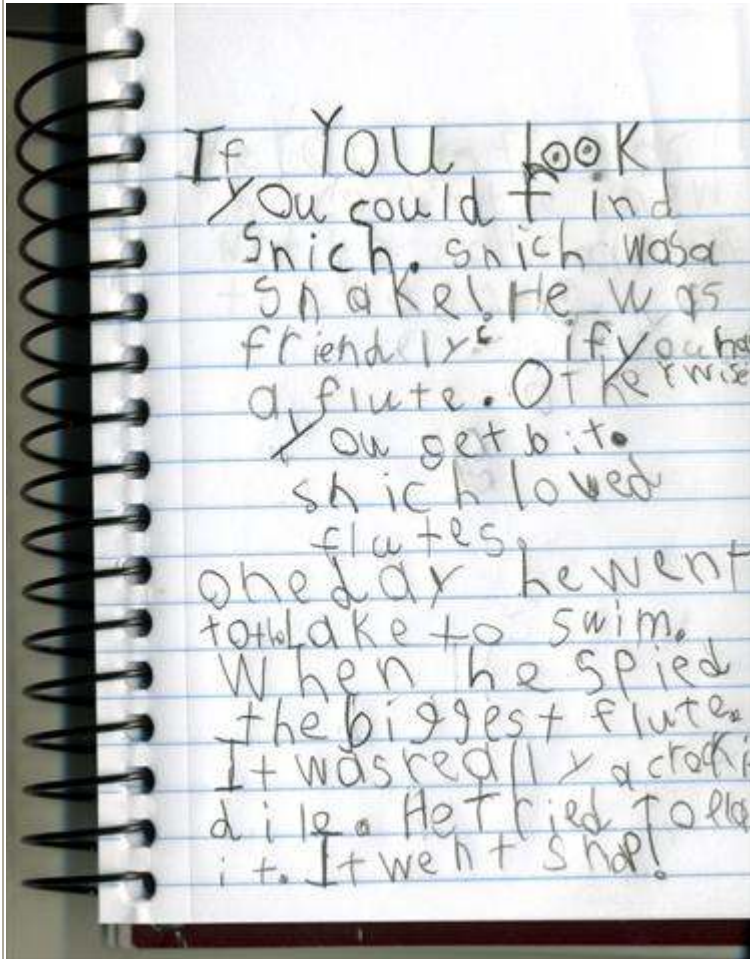 If You look
you could find
Snich. snich wasa
snake! He was
friendly if you ha
a flute. Otherwise
you get bit.
snich loved
flutes.
oneday hewent
tothLake to swim.
When he spied
the biggest flute.
It was really a crocki
dile. He tried to pla
it. It went snap!